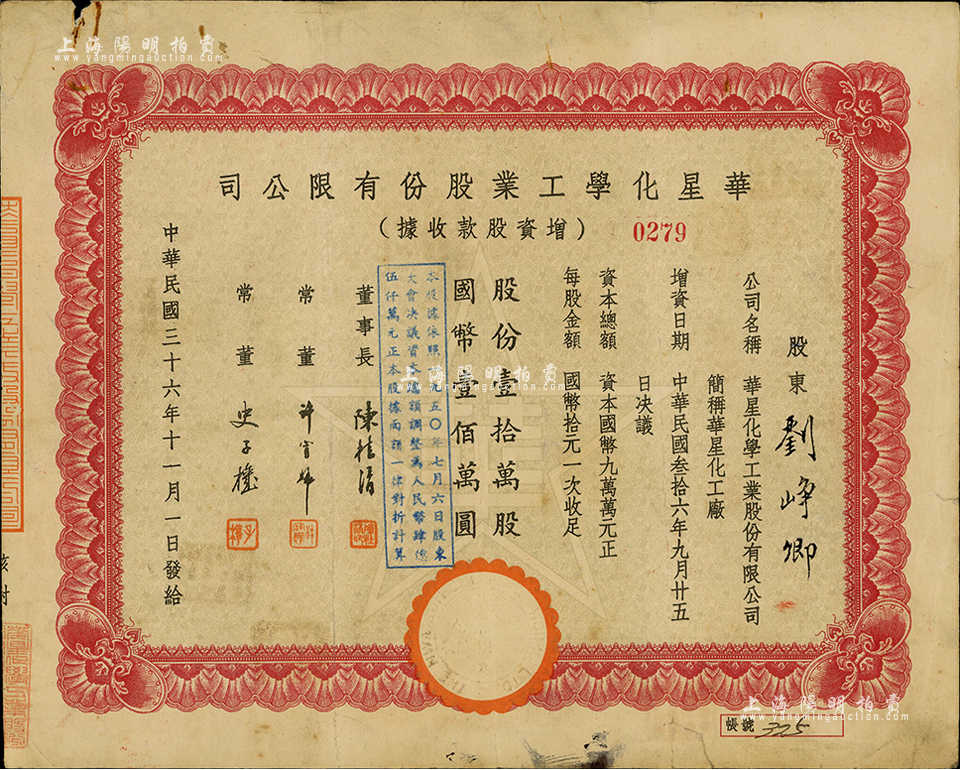 上海陽明拍賣
www.yangmingauction.com
上海陽明拍賣
www.yangmingauction.com
華星化學工業股份有限公司
(增資股款收據)
0279
股東 劉崢卿
公司名稱 華星化學工業股份有限公司
簡稱華星化工廠
增資日期 中華民國叁拾六年九月廿五
日决議
資本總額 資本國幣九萬萬元正
每股金額 國幣拾元一次收足
股份壹拾萬股
國幣壹佰萬圓
本股據依照一九五〇年七月六日股東
大會决議資本總額調整為人民幣肆億
伍仟萬元正本股據面額一律對折計算
董事長 陳
常董 許
常董 史
中華民國三十六年十一月一日發給
上海陽明拍賣
www.yangmingauction.com
核對
上海陽明拍賣
www.yangmingauction.com
帳號 325